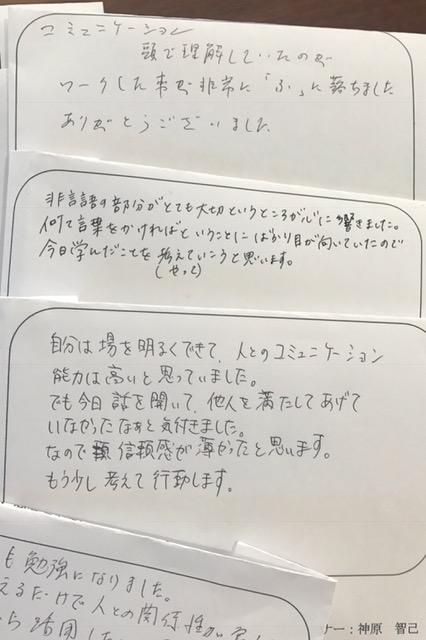 コミュニケーション
頭で理解していたのが
ワークした事が非常に「ふ」に落ちました
ありがとうございました
非言語の部分がとても大切というところが心に響きました。
何て言葉をかければということにばかり目が向いていたので
今日学んだことを考えていこうと思います。
(やって)
自分は場を明るくできて、人とのコミュニケーション
能力は高いと思っていました。
でも今日話を聞いて、他人を満たしてあげて
いなかったなぁと気付きました。
なので信頼感が薄かったと思います。
もう少し考えて行動します。
も勉強になりました。
えるだけで人との関係性が
ら活用した
ナー：神原 智己